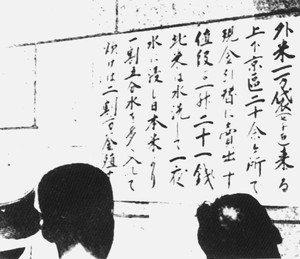 外米一万袋来る
上下京區二十余ヶ所で
現金引替に賣出す
値段は一升二十一銭
此米は水洗して一夜
水に浸し日本米より
一割五分水を多く入して
炊けは二割